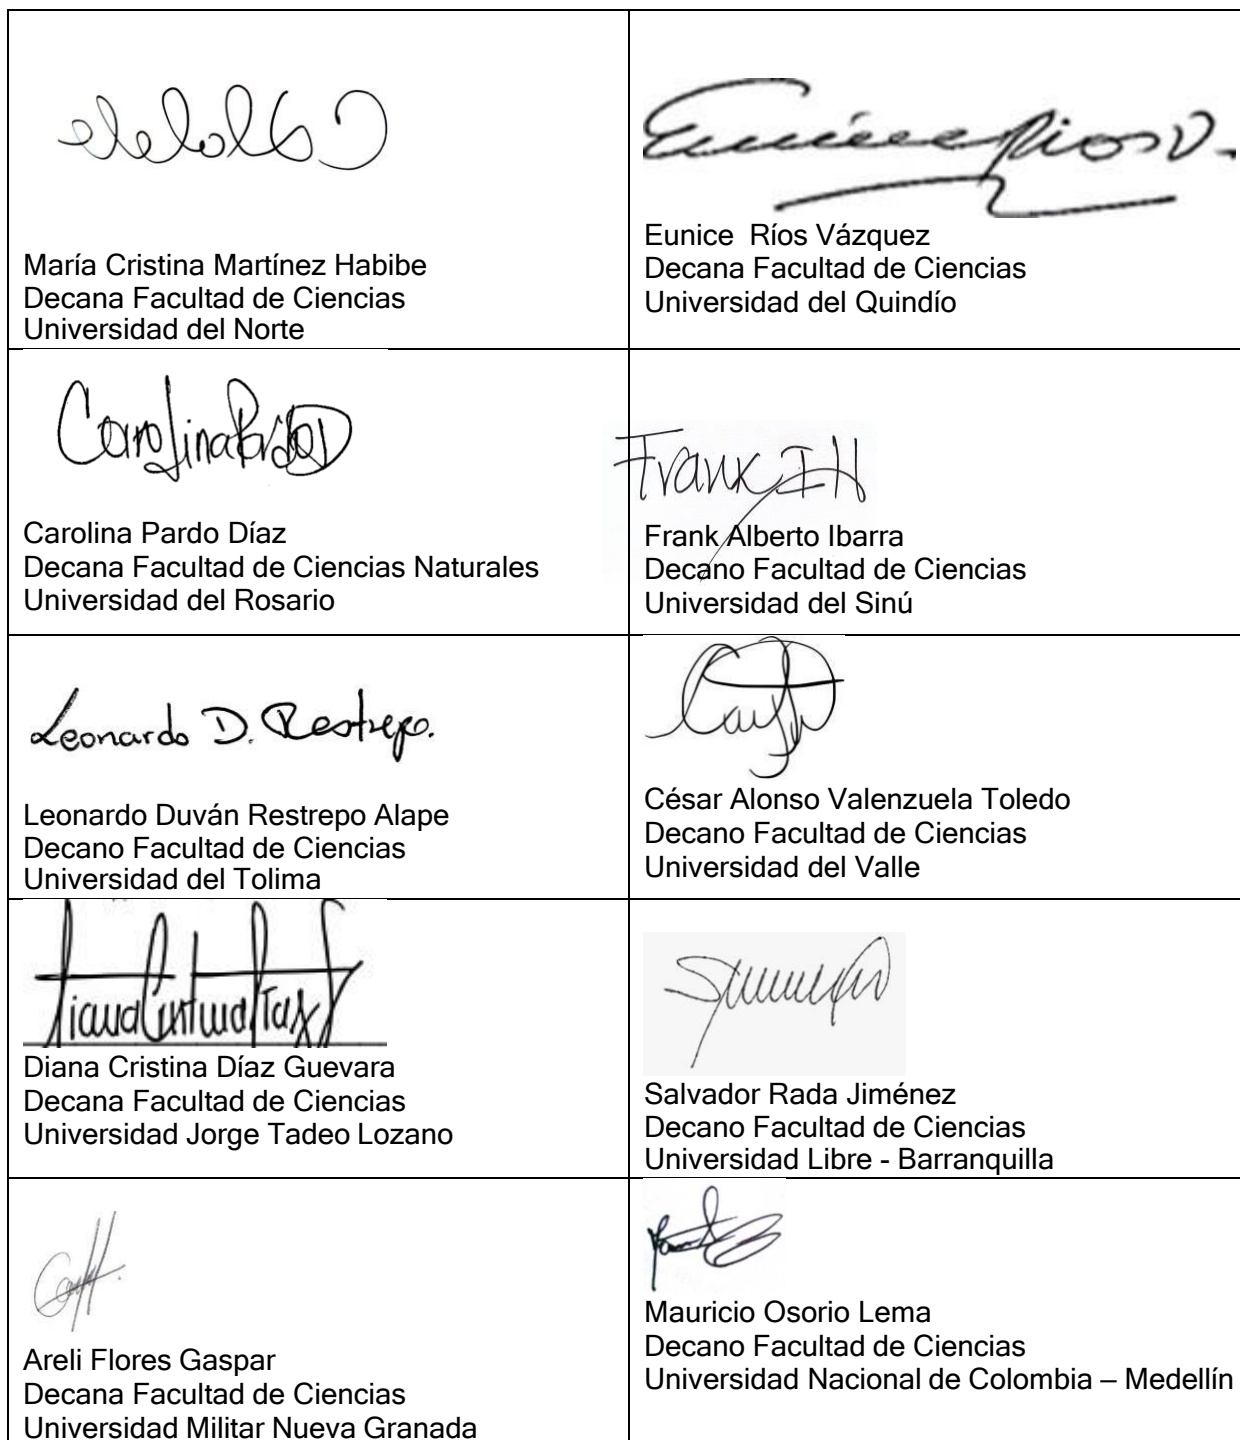 María Cristina Martínez Habibe
Decana Facultad de Ciencias
Universidad del Norte
Eunice Ríos V.
Eunice Ríos Vázquez
Decana Facultad de Ciencias
Universidad del Quindío
Carolina Pardo D
Carolina Pardo Díaz
Decana Facultad de Ciencias Naturales
Universidad del Rosario
Frank I H
Frank Alberto Ibarra
Decano Facultad de Ciencias
Universidad del Sinú
Leonardo D. Restrepo.
Leonardo Duván Restrepo Alape
Decano Facultad de Ciencias
Universidad del Tolima
César Alonso Valenzuela Toledo
Decano Facultad de Ciencias
Universidad del Valle
Diana Cristina Díaz Guevara
Decana Facultad de Ciencias
Universidad Jorge Tadeo Lozano
Salvador Rada Jiménez
Decano Facultad de Ciencias
Universidad Libre - Barranquilla
Areli Flores Gaspar
Decana Facultad de Ciencias
Universidad Militar Nueva Granada
Mauricio Osorio Lema
Decano Facultad de Ciencias
Universidad Nacional de Colombia – Medellín